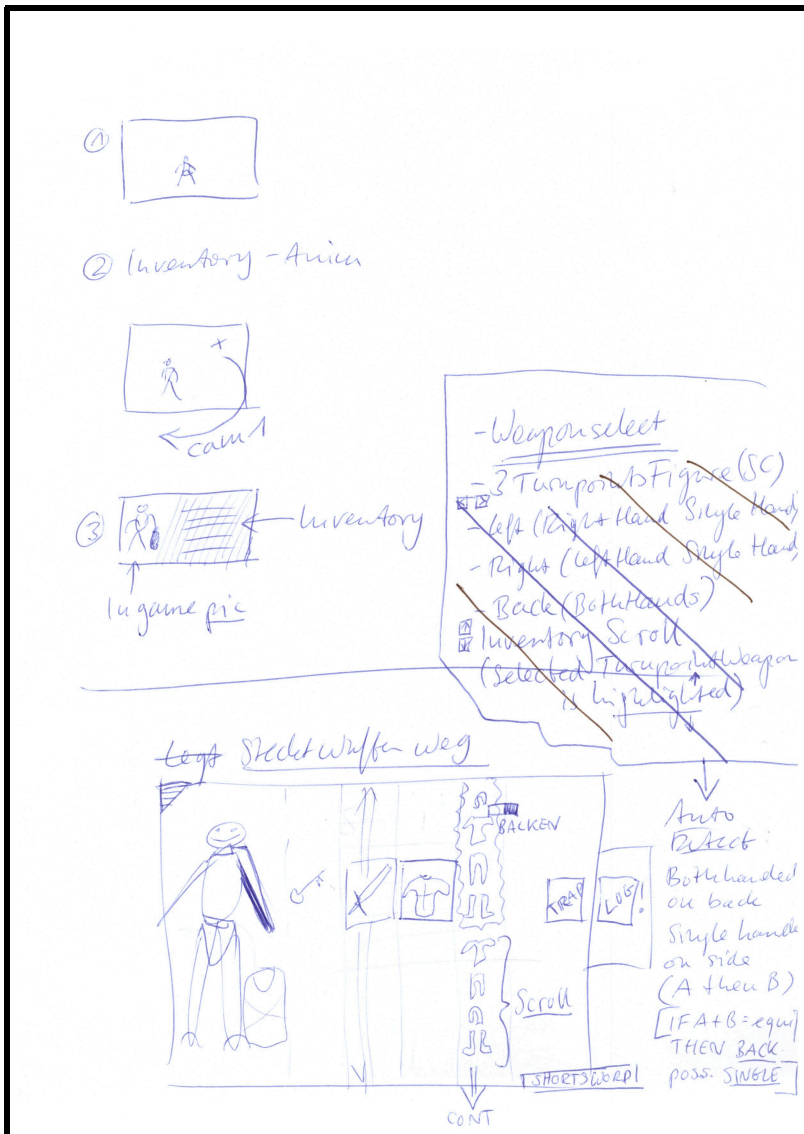 1
2 Inventory - Anim
cam 1
3
Inventory
Ingame pic
- Weaponselect
- 3 Turnpoints Figure (SC)
- Left (Right Hand Single Hand)
- Right (Left Hand Single Hand)
- Back (Both Hands)
Inventory Scroll
(Selected Turnpoint Weapon
is highlighted)
Legt Steckt Waffen weg
BALKEN
TRAP
LOG!
Scroll
SHORTSWORD
CONT
Auto
Detect:
Bothhanded
on back
Single hande
on side
(A then B)
[IF A+B = equi]
THEN BACK
poss. SINGLE]